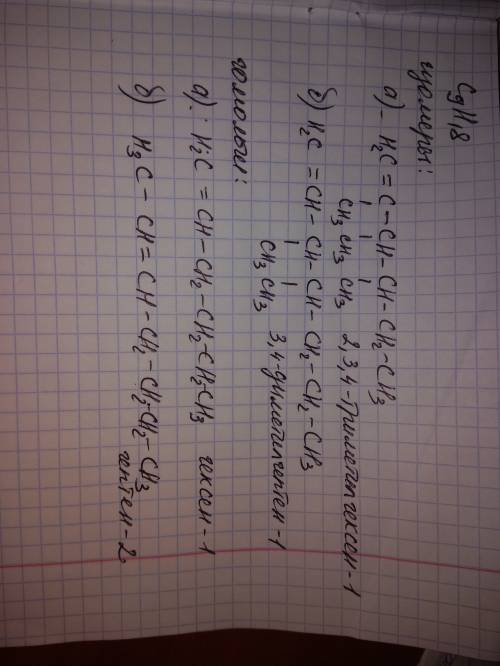 C9H18
изомеры:
а) - H2C = C - CH - CH - CH2 - CH3
CH3 CH3 CH3 2,3,4-триметилгексен-1
б) H2C = CH - CH - CH - CH2 - CH2 - CH3
CH3 CH3 3,4-диметилгептен-1
гомологи:
а): H2C = CH - CH2 - CH2 - CH2 CH3 гексен-1
б) H3C - CH = CH - CH2 - CH2 - CH2 - CH3
гептен-2